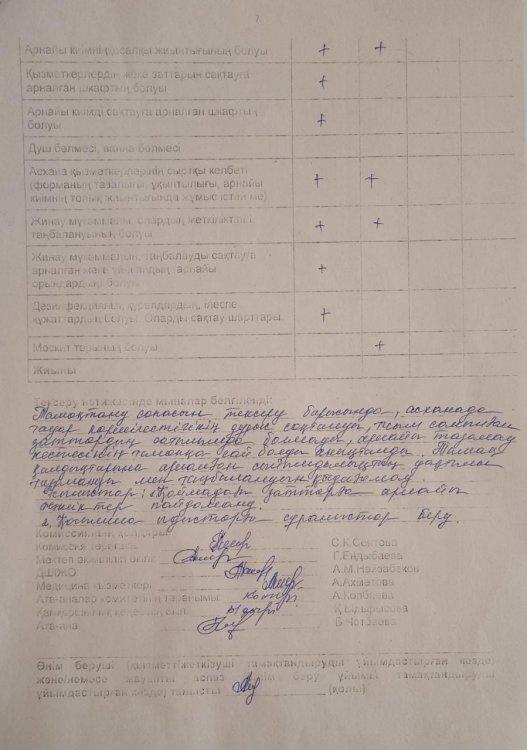 7
Арнайы киімнің қосалқы жиынтығының болуы + +
Қызметкерлердің жеке заттарын сақтауға
арналған шкафтың болуы +
Арнайы киімді сақтауға арналған шкафтың
болуы +
Душ бөлмесі, ванна бөлмесі
Асхана қызметкерлерінің сыртқы келбеті
(форманың тазалығы, ұқыптылығы, арнайы
киімнің толық жиынтығында жұмыс істей ме) + +
Жинау мүкәммалы, олардың жеткіліктілігі
таңбалануының болуы + +
Жинау мүкәммалын, таңбалауды сақтауға
арналған жеке үй-жайдың (арнайы
орындардың) болуы +
Дезинфекциялық құралдардың, ілеспе
құжаттардың болуы. Оларды сақтау шарттары. +
Москит торының болуы +
Жиыны
Тексеру нәтижесінде мыналар белгіленді:
Тамақтану сапасын тексеру барысында, асханада
тауар көршілестігінің дұрыс сақталуы, тыйым салынған
заттардың сатылымда болмауы, арнайы тағамдау
кестесінің тамаққа сай болуы анықталды. Тамақ
қалдықтарына арналған
тұрмағаны мен таңбалануын қадағалау.
Ұсыныстар: 1. Қоймадағы заттарға арнайы
пайдалану.
2. Қосымша ыдыстарға сұраныстар беру.
Комиссияның қолдары:
Комиссия төрағасы С.К.Сеитова
Мектеп әкімшілік өкілі Г.Ендыбаева
ДШІЖО А.М.Найзабеков
Медицина қызметкері А.Ахметова
Ата-аналар комитетінің төрайымы А.Көпбаева
Қамқоршылық кеңесінің өкілі Қ.Ыдырысова
Ата-ана Б.Чотбаева
Өнім беруші (қызметті жеткізуші тамақтандыруды ұйымдастырған кезде)
және/немесе жауапты аспаз (білім беру ұйымы тамақтандыруды
ұйымдастырған кезде) танысты (қолы)